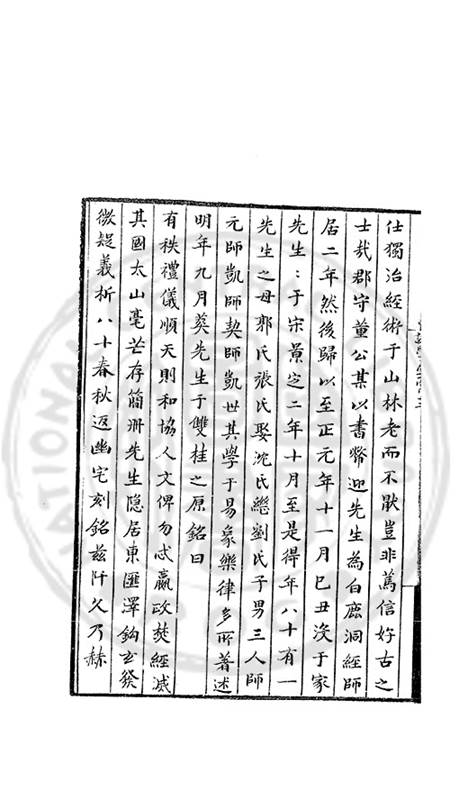 仕獨治經術于山林老而不猒豈非篤信好古之
士㢤郡守董公某以書幣迎先生為白鹿洞經師
居二年然後歸以至正元年十一月己丑沒于家
先生:于宋景定二年十月至是得年八十有一
先生之母郭氏張氏娶沈氏繼劉氏子男三人師
元師凱師契師凱世其學于易象樂律多所著述
明年九月葬先生于雙桂之原銘曰
有秩禮儀順天則和協人文俾勿忒嬴政焚經滅
其國太山毫芒存簡冊先生隐居東匯澤鈎玄發
微疑義析八十春秋返幽宅刻銘兹阡久乃赫